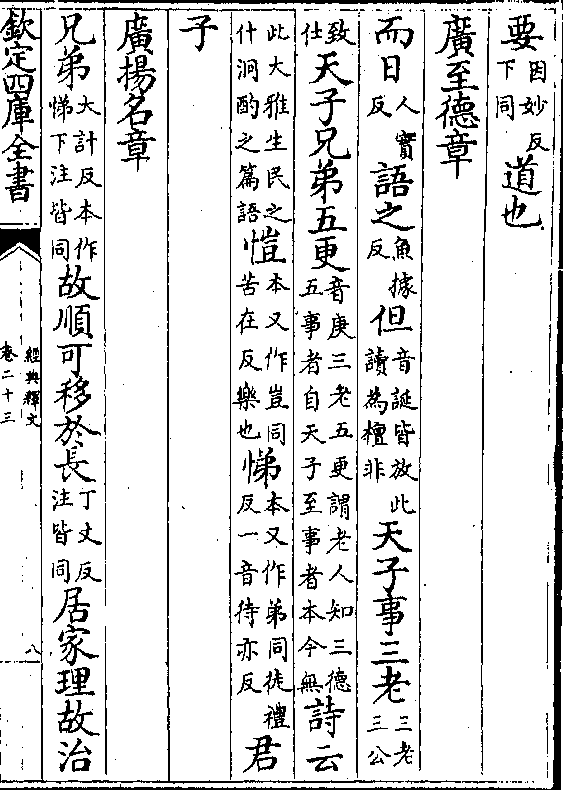 要因妙反下同道也
廣至德章
而日人實反語之魚據反但音誕皆放此讀為檀非天子事三老三老三公
致仕天子兄弟五更音庚三老五更謂老人知三德五事者自天子至事者本今無詩云
此大雅生民之什泂酌之篇語愷本又作豈同苦在反樂也悌本又作弟同徒禮反一音待亦反君
子
廣揚名章
兄弟大計反本作悌下注皆同故順可移於長丁丈反注皆同居家理故治
欽定四庫全書
經典釋文
卷二十三
八